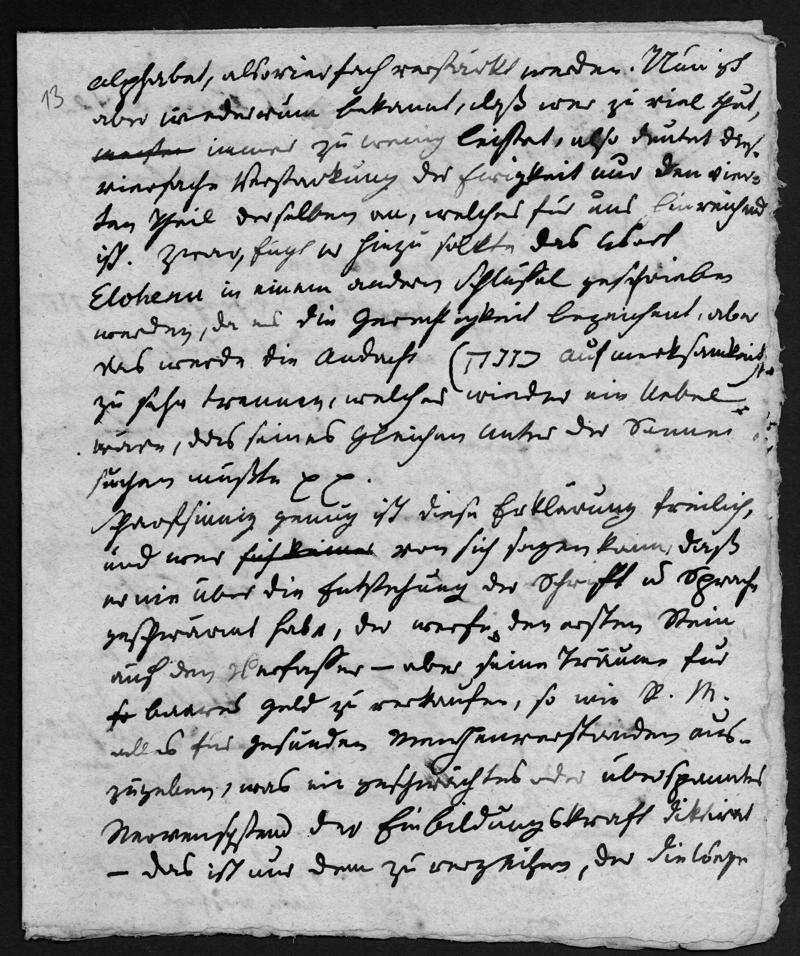 13
alphabet, also vierfach verstärkt werden. Nun ist
aber wiederum bekannt, daß wer zu viel thut,
immer zu wenig leistet, also deutet die
vierfache Verstarkung der Ewigkeit nur den vier-
ten Theil derselben an, welches für uns hinreichend
ist. Zwar, fügt er hinzu sollte das Wort
Elohenu in einem andern Schlüssel geschrieben
werden, da es die Gerechtigkeit bezeichent, aber
das werde die Andacht ( Aufmerksamkeit)
zu sehr trennen, welches wieder ein Uebel
wäre, das seines Gleichen unter der Sonne
suchen müßte
Scharfsinnig genug ist diese Erklärung freilich,
und wer von sich sagen kann, daß
er nie über die Entstehung der Schrift u Sprache
geschwärmt habe, der werfe den ersten Stein
auf den Verfasser — aber seine Träume für
baares Geld zu verkaufen, so wie R. M.
alles für gesunden Menschenverstanden aus-
zugeben, was ein geschwächtes oder überspanntes
Nervensystem der Einbildungskraft diktirt
— das ist nur dem zu verzeihen, der die